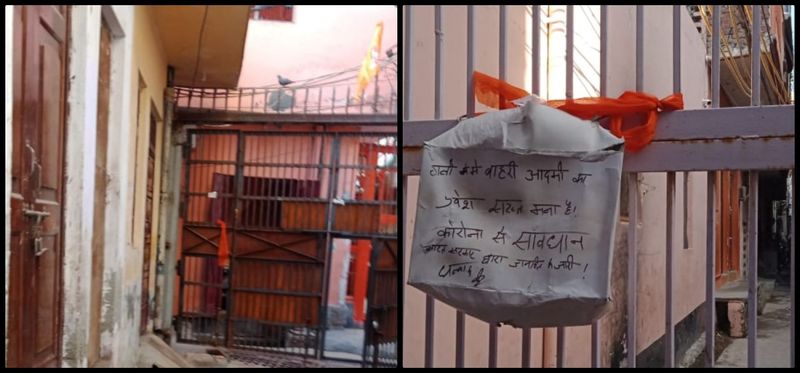 गली में बाहरी आदमी का
प्रवेश सख्त मना है।
कोरोना से सावधान
भारत सरकार द्वारा जारी
धन्यवाद